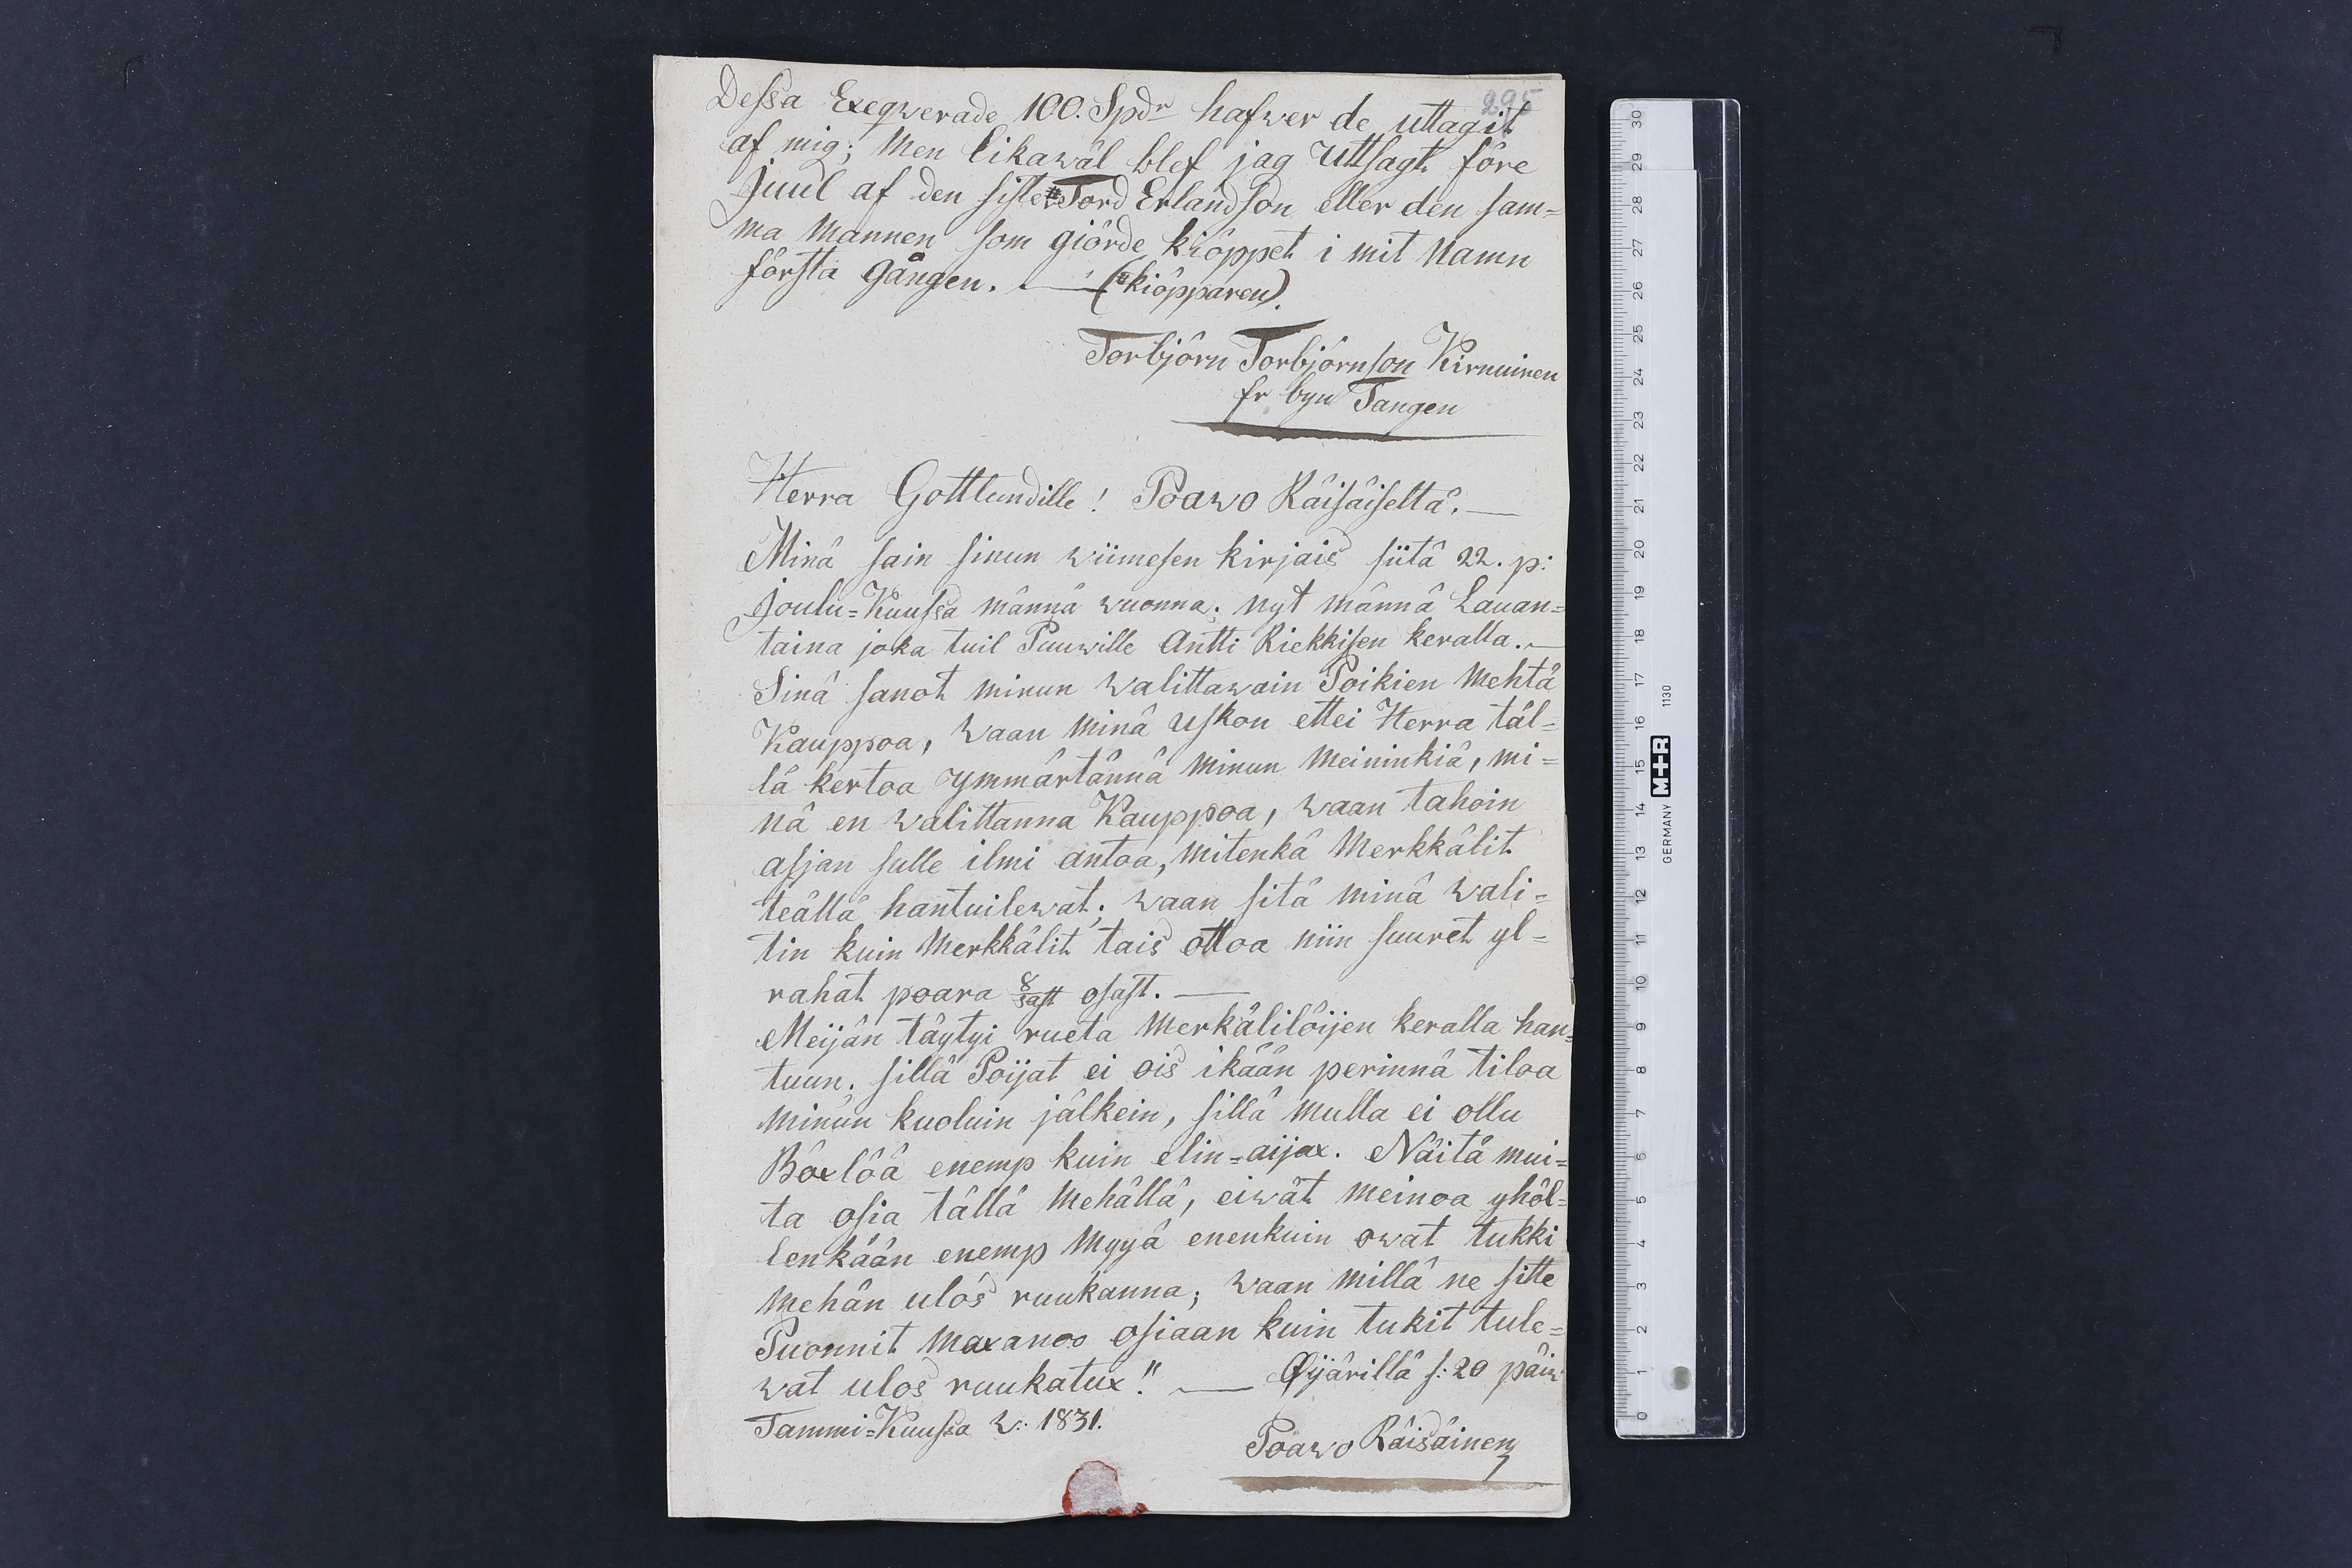 295
Dessa Exeqverade 100. Spdr hafwer de uttagit
af mig; Men likawäl blef jag Uttsagt före
Juul af den siste # Tord Erlandson eller den sam=
ma Mannen som giörde kiöppet i mit Namn
första Gången. — (# kiöpparen).
Torbjörn Torbjörnson Kirnuinen
fr byn Tangen
Herra Gottlundille! Poawo Räisäiseltä. —
Minä sain sinun wiimesen kirjais siitä 22. p:
Joulu=Kuussa männä wuonna; nyt männä Lauan=
taina joka tuil Puuwille Antti Riekkisen keralla. —
Sinä sanot minun walittawain Poikien Mehtä
Kauppoa, waan minä uskon ettei Herra täl=
lä kertoa ymmärtännä minun meininkiä, mi=
nä en walittanna Kauppoa, waan tahoin
asjan sulle ilmi antoa, mitenkä Merkkälit
teällä hantuilewat; waan sitä minä wali=
tin kuin Merkkälit tais ottoa niin suuret yl=
rahat poara 8/sast osast. —
Meijän täytyi rueta Merkälilöijen keralla han=
tuun, sillä Poijat ei ois ikään perinnä tiloa
minun kuoluin jälkein, sillä mulla ei ollu
Böxlöä enemp kuin elin=aijax. Näitä mui=
ta osia tällä Mehällä, eiwät meinoa yhöl=
lenkään enemp Myyä enenkuin owat tukki
mehän ulos ruukanna; waan millä ne sitte
Puonnit Maxanoo osiaan kuin tukit tule=
wat ulos ruukatux!! — Öijärillä s: 20 päiw
Tammi=Kuussa w: 1831.
Poawo Räisäinen
0 1 2 3 4 5 6 7 8 9 10 11 12 13 14 15 16 17 18 19 20 21 22 23 24 25 26 27 28 29 30
GERMANY M+R 1130